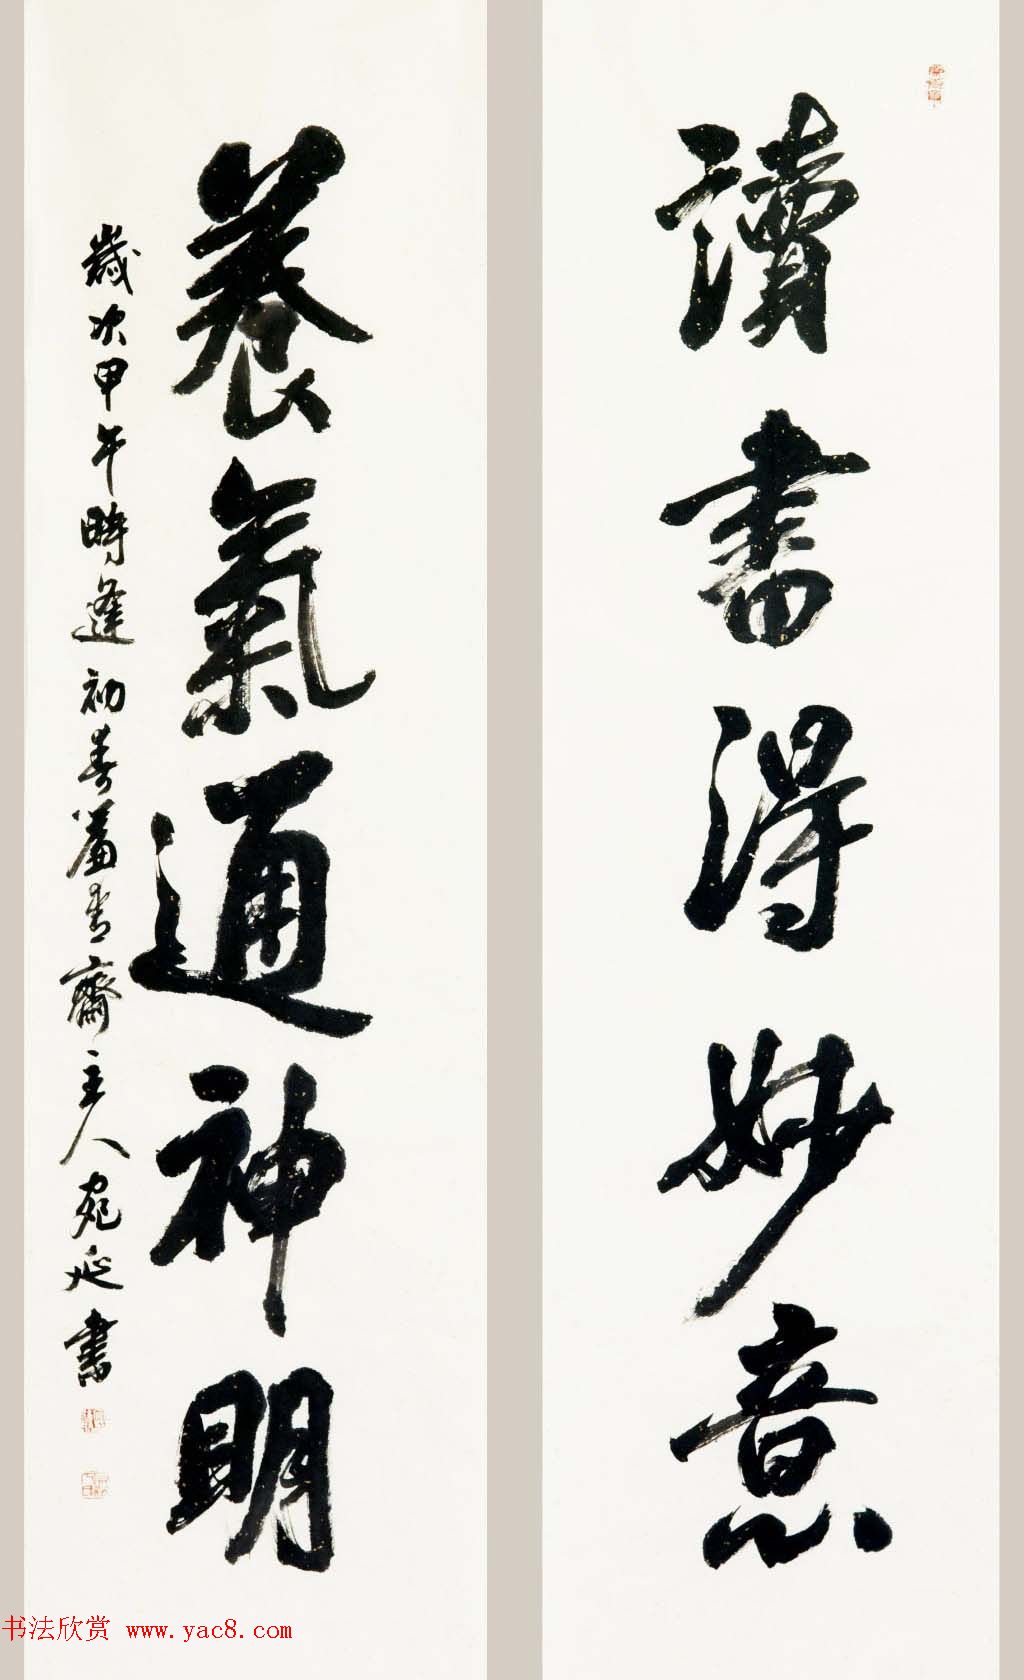 讀書得妙意
養氣通神明
歲次甲午時逢初春蕭青齋主人宛延書
书法欣赏 www.yac8.com